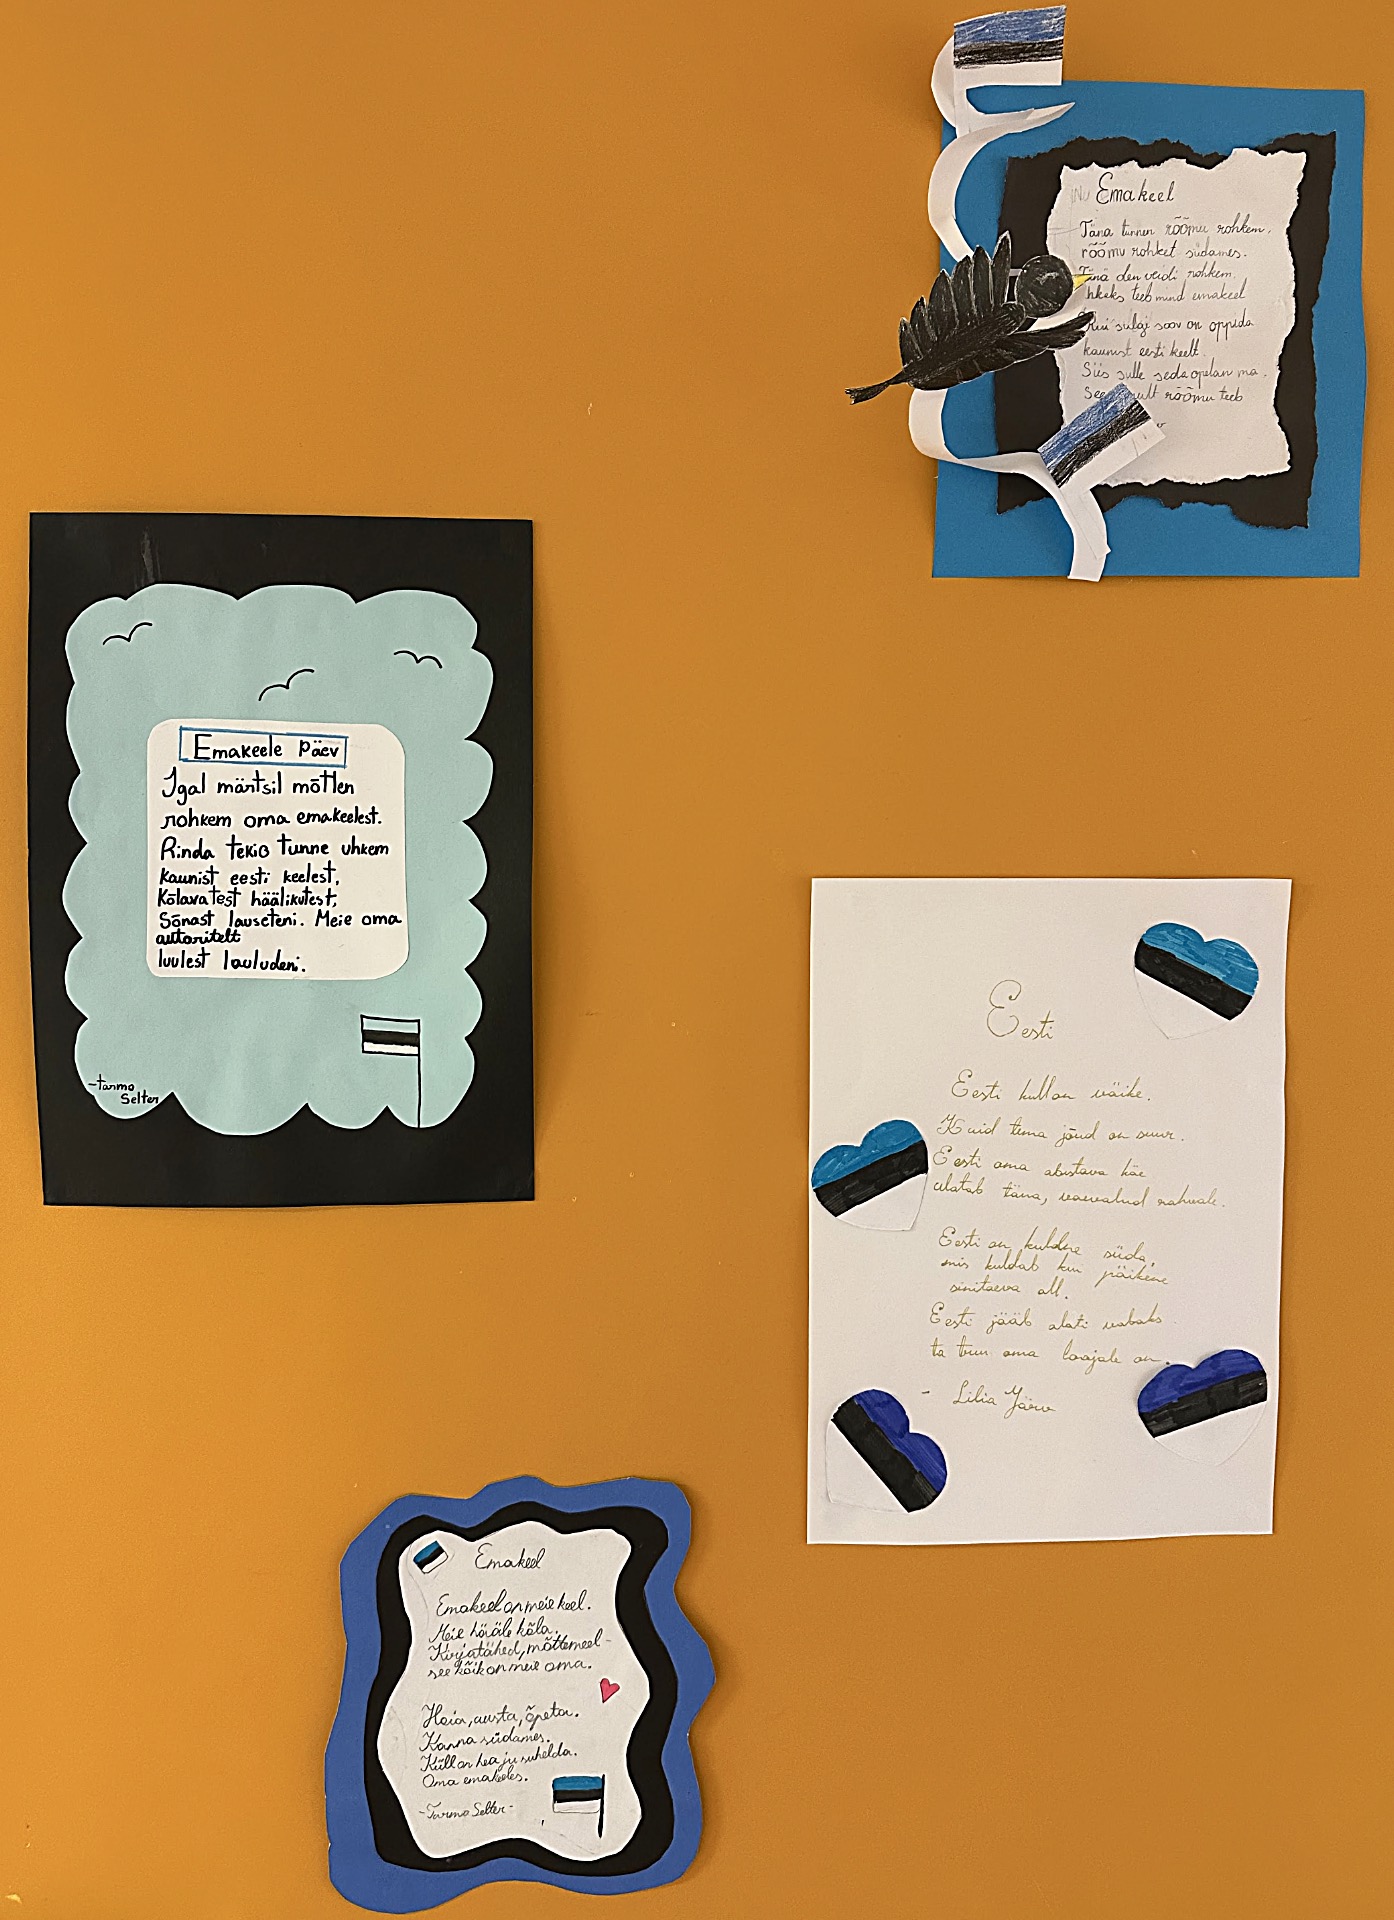 Emakeel
Täna tunnen rõõmu rohkem,
rõõmu rohket südames.
Täna olen veidi rohkem
teeb mind emakeel
Kui sulgi soov on õppida
kaunist eesti keelt.
Siis sulle seda õpetan ma.
See mult rõõmu teeb
Emakeele Päev
Igal märtsil mõtlen
rohkem oma emakeelest.
Rinda tekib tunne uhkem
kaunist eesti keelest,
Kõlavatest häälikutest,
Sõnast lauseteni. Meie oma
autoritelt
luulest lauludeni.
-Tarmo
Selter
Eesti
Eesti küll on väike.
Kuid tema jõud on suur.
Eesti oma abistava käe
ulatab täna, vaevatud rahvale.
Eesti on kuldne süda,
mis kuldab kui päikene
sinitaeva all.
Eesti jääb alati vabaks
ta truu oma loojale on.
- Lilia Järv
Emakeel
Emakeel on meie keel.
Meie hääle kõla.
Kirjatähed, mõttemeel-
see kõik on meie oma.
Hoia, austa, õpeta.
Kanna südames.
Küll on hea ju suhelda.
Oma emakeeles.
-Tarmo Selter-